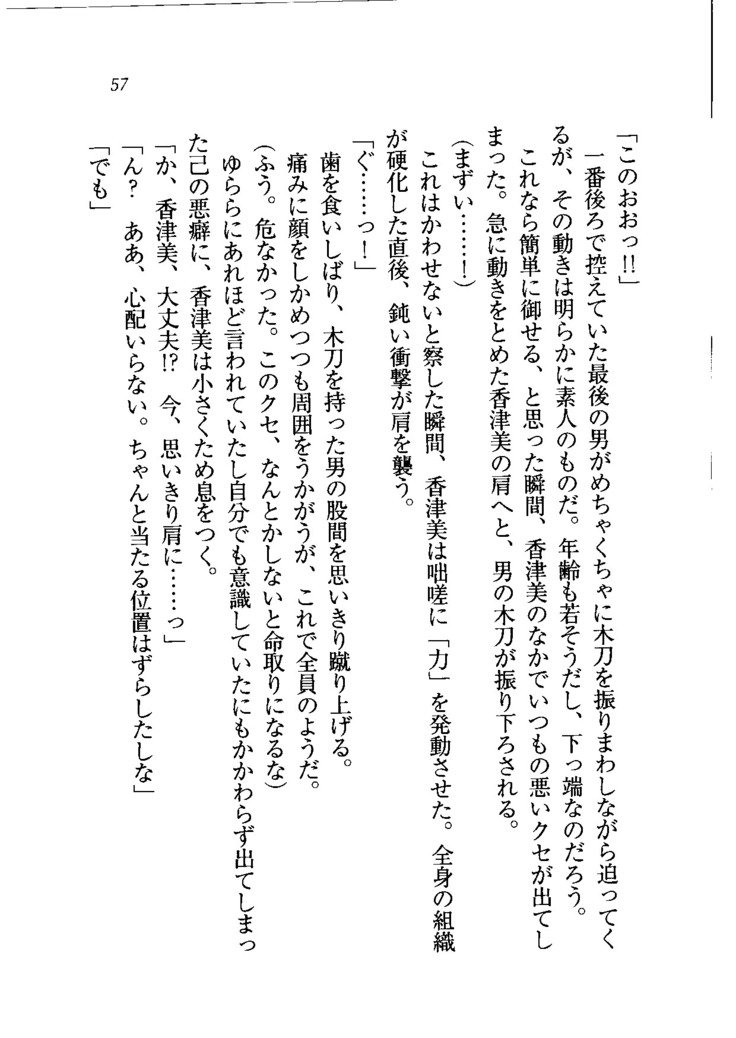 57
「このおおっ!!」
一番後ろで控えていた最後の男がめちゃくちゃに木刀を振りまわしながら迫ってく
るが、その動きは明らかに素人のものだ。年齢も若そうだし、下っ端なのだろう。
これなら簡単に御せる、と思った瞬間、香津美のなかでいつもの悪いクセが出てし
まった。急に動きをとめた香津美の肩へと、男の木刀が振り下ろされる。
(まずい……！)
これはかわせないと察した瞬間、香津美は咄嗟に「力」を発動させた。全身の組織
が硬化した直後、鈍い衝撃が肩を襲う。
「ぐ……っ！」
歯を食いしばり、木刀を持った男の股間を思いきり蹴り上げる。
痛みに顔をしかめつつも周囲をうかがうが、これで全員のようだ。
(ふう。危なかった。このクセ、なんとかしないと命取りになるな)
ゆららにあれほど言われていたし自分でも意識していたにもかかわらず出てしまっ
た己の悪癖に、香津美は小さくため息をつく。
「か、香津美、大丈夫!?　今、思いきり肩に……っ」
「ん？　ああ、心配いらない。ちゃんと当たる位置はずらしたしな」
「でも」